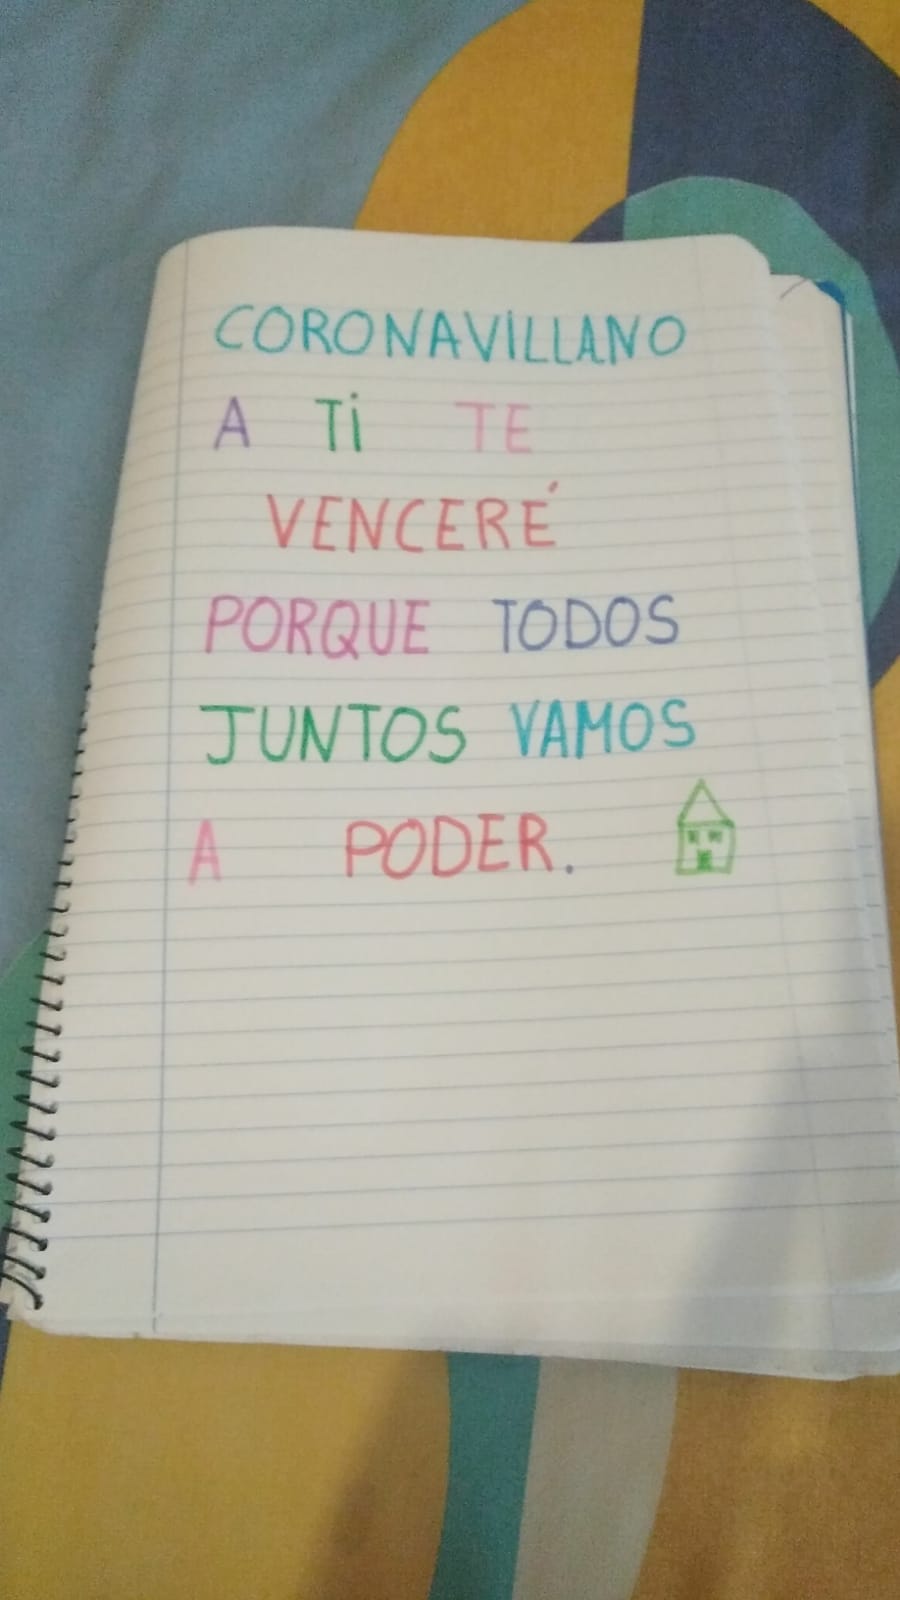 CORONAVILLANO
A Ti TE
VENCERÉ
PORQUE TODOS
JUNTOS VAMOS
A PODER.